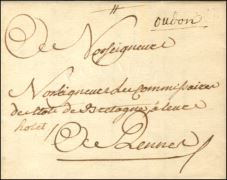 oudon
A Nosseigneurs
Nosseigneurs les Commissaires
des etats de Bretagne a leur
hotel
A Rennes